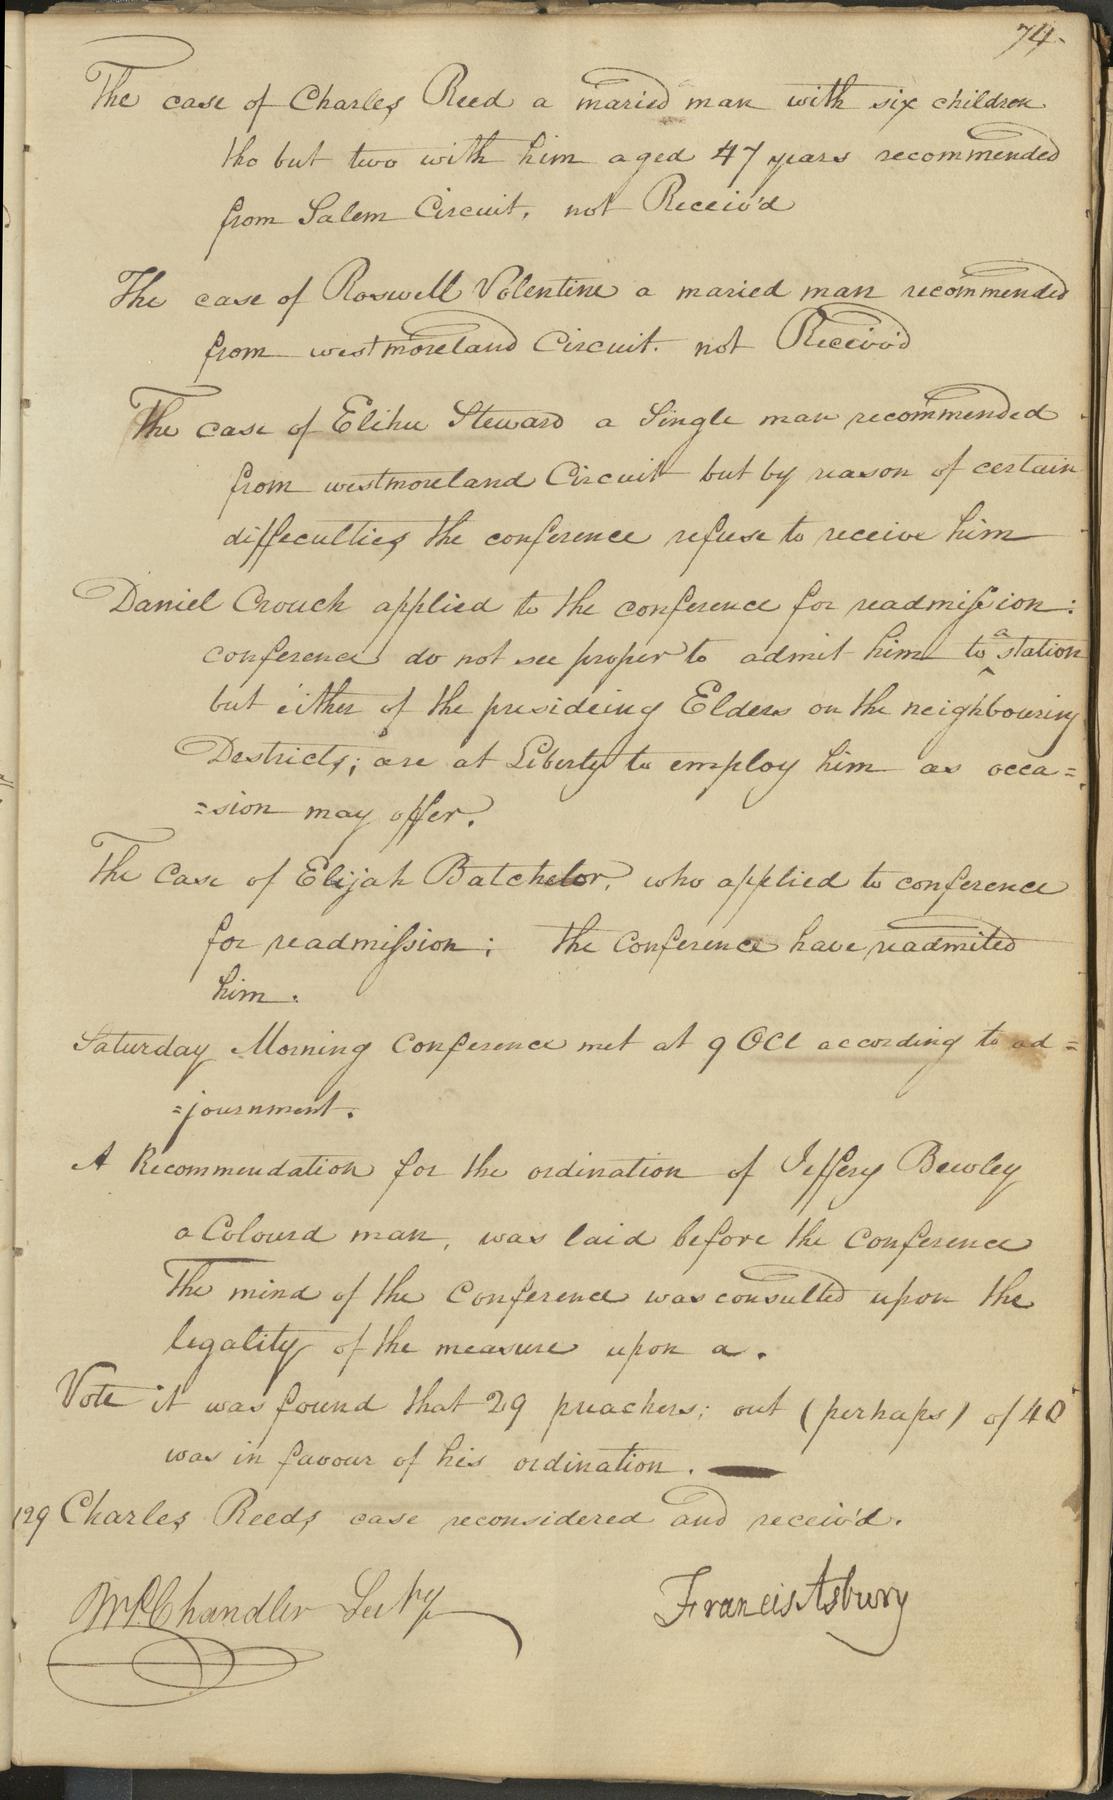 74.
The case of Charles Reed a maried man with six children
tho but two with him aged 47 years recommended
from Salem Circuit, not Receiv'd
The case of Roswell Valentine a maried man recommended
from westmoreland Circuit. not Receiv'd
The case of Elihu Steward a Single man recommended
from westmoreland Circuit but by reason of certain
diffeculties the conference refuse to receive him
Daniel Crouch applied to the conference for readmission:
conference do not see proper to admit him to ^a station
but either of the presideing Elders on the neighbouring
Destricts; are at Liberty to employ him as occa=
=sion may offer.
The Case of Elijah Batchelor, who applied to conference
for readmission; the Conference have readmited
him.
Saturday Morning Conference met at 9 OCl according to ad=
=journment.
A Recommendation for the ordination of Jeffery Bewley
a Colourd man, was laid before the Conference
The mind of the Conference was consulted upon the
legality of the measure upon a.
Vote it was found that 29 preachers; out (perhaps) of 40
was in favour of his ordination.
129 Charles Reeds case reconsidered and receiv'd.
Wm P Chandler Secty
Francis Asbury